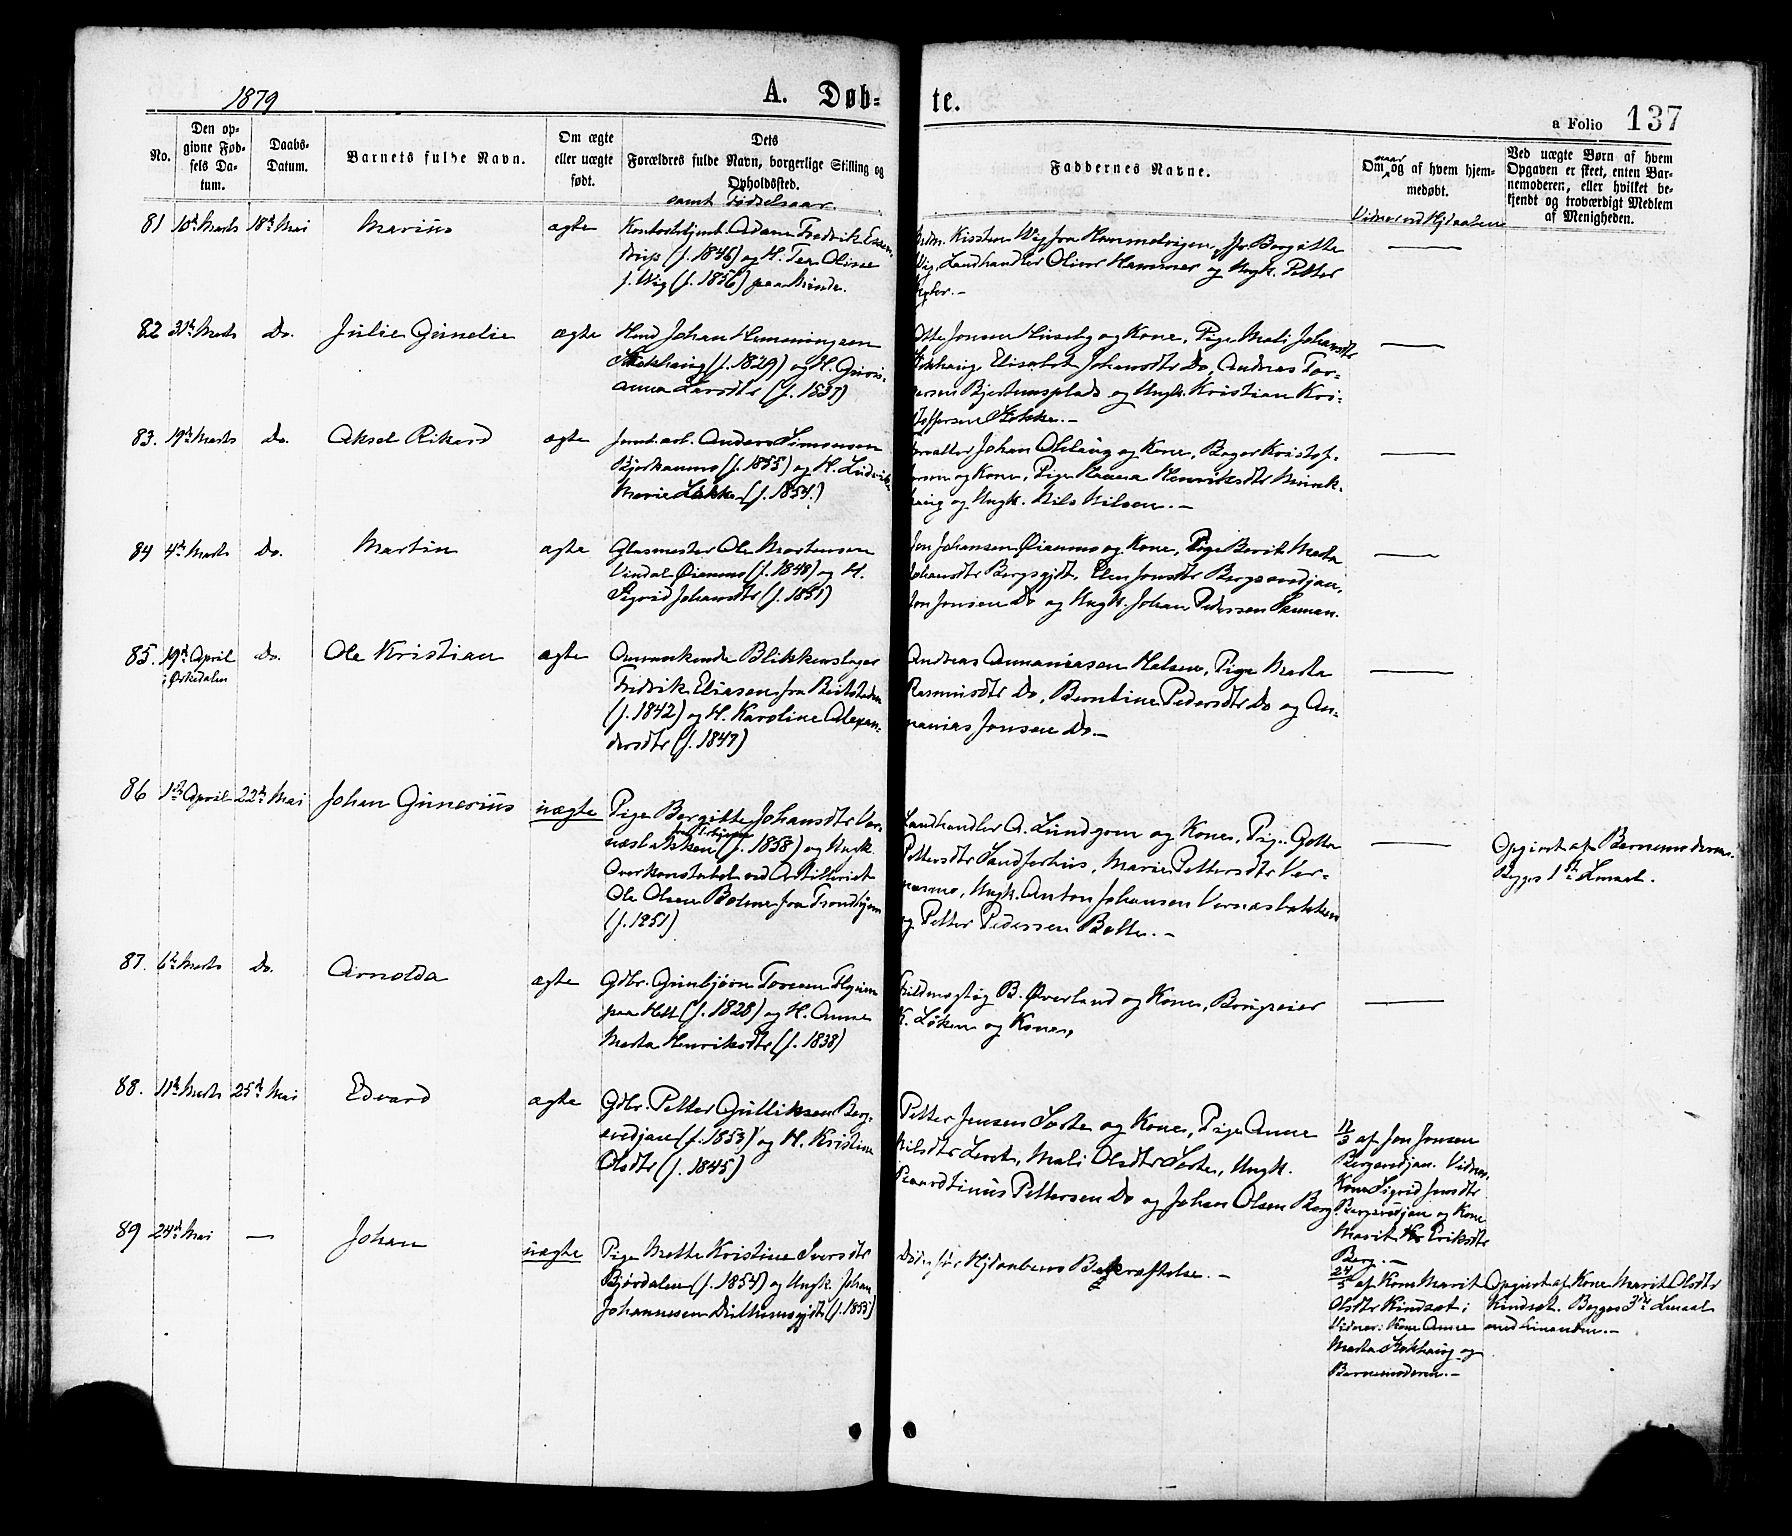 1879
A. Døb-
te.
a Folio 137
No.
Den op-
givne Fød-
sels Da-
tum.
Daabs-
Datum.
Barnets fulde Navn.
Om ægte
eller uægte
født.
Dets
Forældres fulde Navn, borgerlige Stilling og
Opholdssted.
samt Fødselsaar.
Faddernes Navne.
Om naar og af hvem hjem-
medøbt.
Vidner ved Hjdaaben
Ved uægte Børn af hvem
Opgaven er skeet, enten Bar-
nemoderen, eller hvilket be-
kjendt og troværdigt Medlem
af Menigheden.
81 10de Marts 18de Mai Marius ægte Adam Fredrik
(f. 1846) og H. Tea Oline
f. Wig (f. 1856) paa
Kirsten Wig fra Hommelvigen, Bergitte
Wig, Landhandler Oliver Hammer og Ungk. Petter
82 31te Marts Do. Julie Gunelie ægte Johan Henningsen
Stokhaug (f. 1829) og H.
anna Larsdtr (f. 1837)
Jonsen Huseby og Kone, Pige Mali Johansdtr
Stokhaug, Elisabet Johansdtr Do, Andreas Tor-
og Ungk. Kristian Kri-
stoffersen Stokke.-
83. 19de Marts Do. Aksel Rikard ægte Anders Simonsen
(f. 1855) og H. Ludvikke
Marie Løkke (f. 1854.)
Johan og Kone, Bager Kristof-
fersen og Kone, Pige Hanna Henriksdtr Munk-
haug og Ungk. Nils Nilsen.-
84 4de Marts Do. Martin ægte Glasmester Ole Mortensen
Vindal Øianmo (f. 1848) og H.
Sigrid Johansdtr (f. 1851)
Jon Johansen Øianmo og Kone, Pige Berit Marta
Johansdtr Bergsgjdt, Elen Jonsdtr Bergsvedjan,
Jon Jonsen Do og Ungk. Johan Pedersen
85. 19de April Do. Ole Kristian ægte Omvankende Blikkenslager
i Ørkedalen
Fredrik Eliasen fra Beitstaden
(f. 1842) og H. Karoline Alexan-
dersdtr (f. 1847)
Andreas Annaniasen Halsen, Pige Marta
Rasmusdtr Do, Berntine Pedersdtr Do og An-
nanias Jonsen Do.-
86 1ste April 22de Mai Johan Gunerius uægte Pige Bergitte Johansdtr Ver-
næsbakken (f. 1858) og Ungk.
Overkonstabel ved Artilleriet
Ole Olsen Bolme fra Trondhjem
(f. 1851)
Landhandler A. Lundgren og Kone, Pige
Pettersdtr Sandferhus, Marie Pettersdtr Ver-
næsmo, Ungk. Anton Johansen Vernæsbakken
og Petter Pedersen
Opgivet af Barnemoderen.
Begges 1ste Lmaal.
87. 6te Marts Do. Arnolda ægte Gdbr. Gunbjørn Toresen
paa Hell (f. 1828) og H. Anne
Marta Henriksdtr (f. 1838)
Fuldmægtig B. Øverland og Kone, Brugseier
K. Løken og Kone,
88. 11te Marts 25de Mai Edvard ægte Gdbr. Petter Gulliksen Berg-
svedjan (f. 1853) og H. Kristine
Olsdtr (f. 1845)
Petter Jensen Sorte og Kone, Pige Anne
Nilsdtr Leret, Mali Olsdtr Sorte, Ungk.
Pettersen Do og Johan Olsen Berg
11/3 af Jon Jonsen
Bergsvedjan. Vidner,
Kone Sigrid Jonsdtr
Bergsvedjan og Kone
Marit Eriksdtr
Berg.-
89 24de Mai — Johan uægte Pige Mette Kristine Iversdtr
Bjørdalen (f. 1854) og Ungk. Johan
Johannesen (f. 1855)
Død før Hjdaabens Bekræftelse.-
24/5 af Kone Marit
Olsdtr Kindset;
Vidner: Kone Anne
Marta Stokhaug og
Barnemoderen.-
Opgivet af Kone Marit Olsdtr
Kindset. Begges 3die Lmaal
med hinanden.-